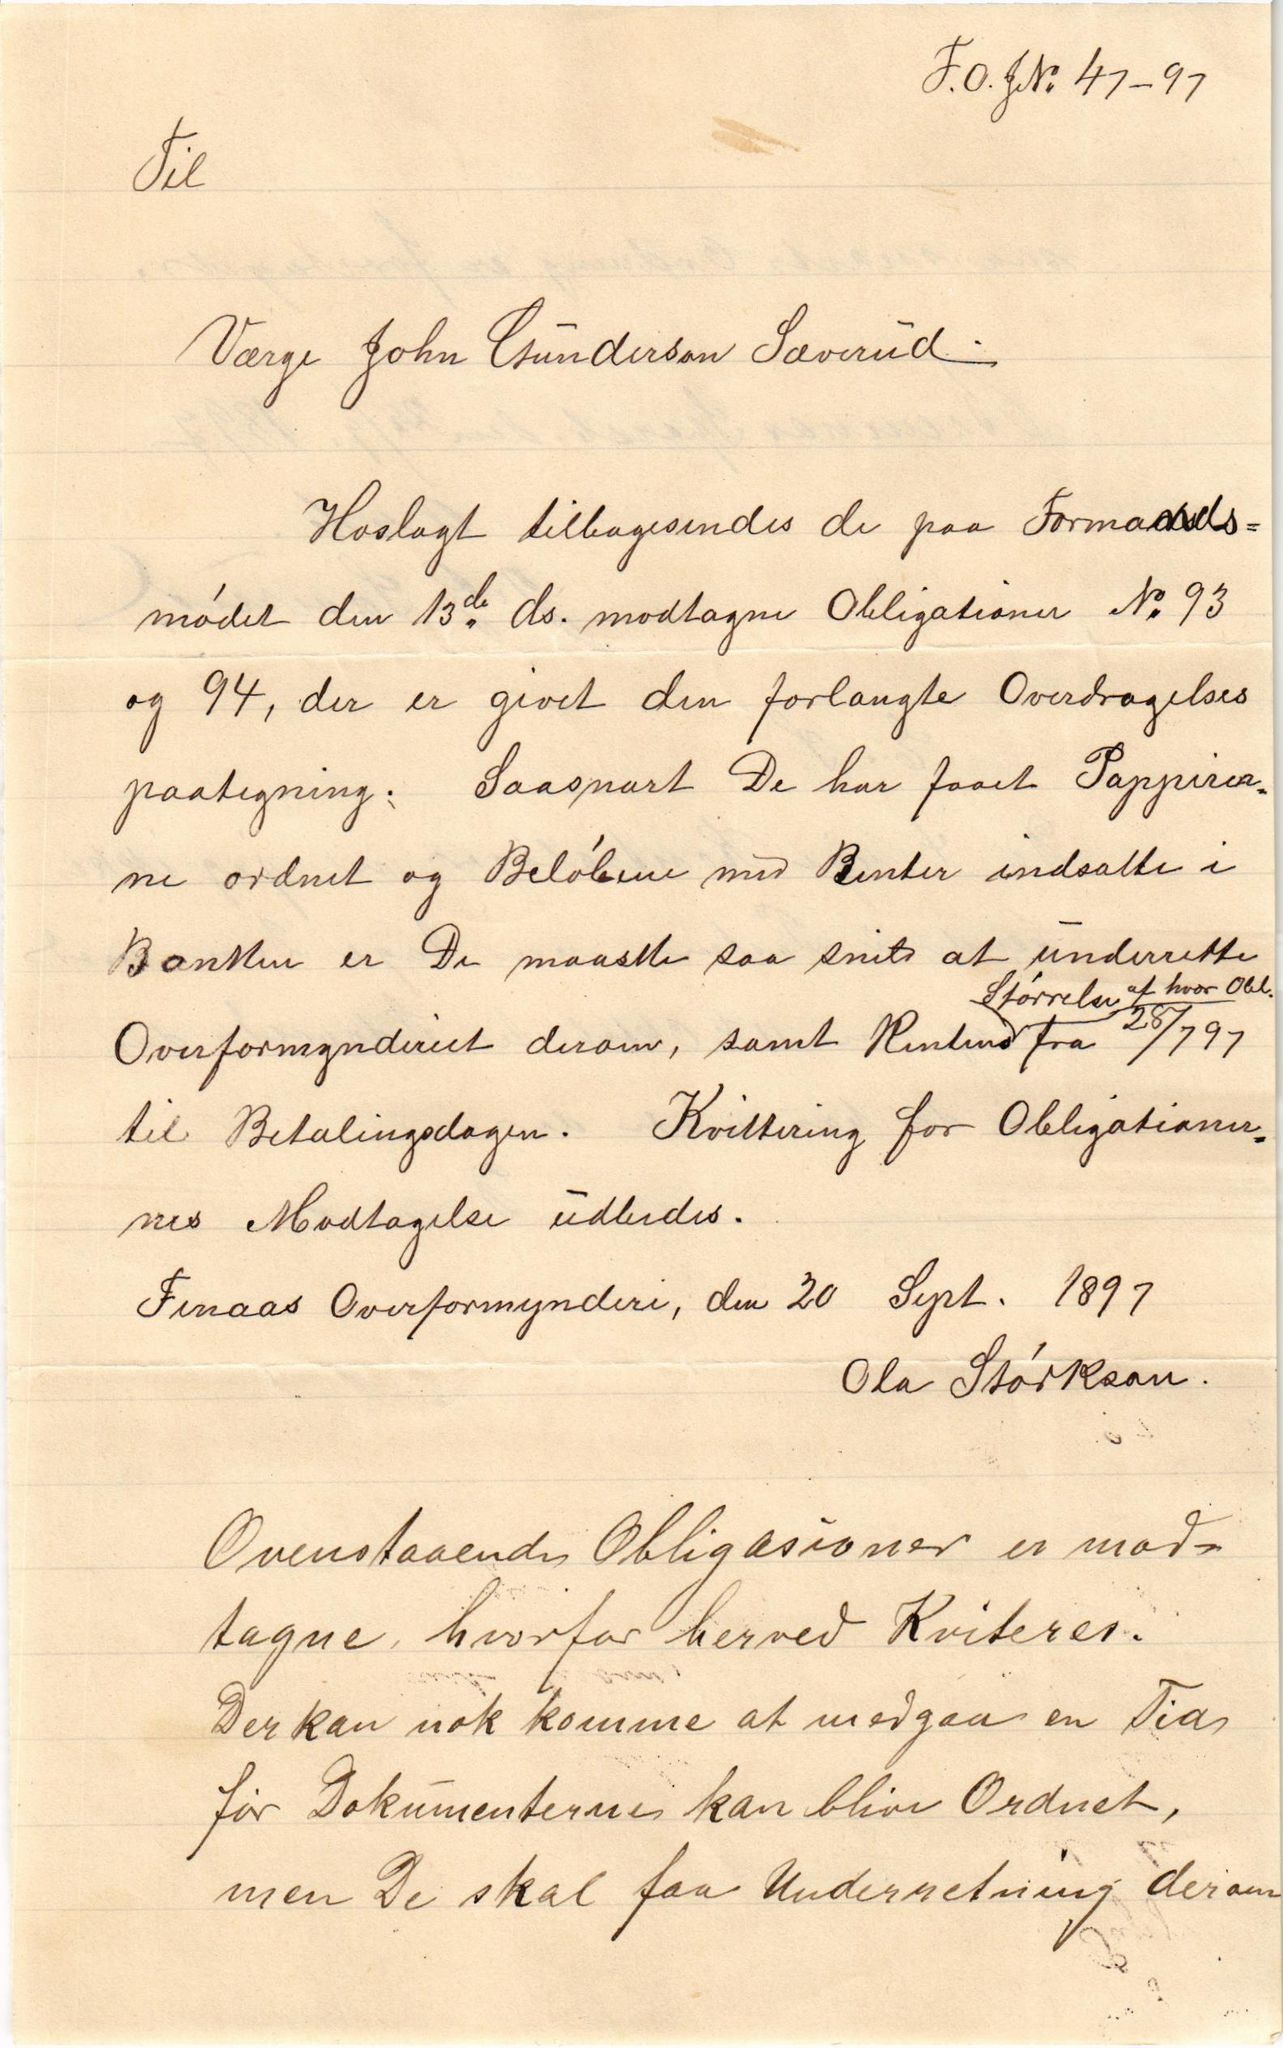 F.O. J.No. 47-97
Til
Værge John Gunderson Sæverud.
Hoslagt tilbagesendes de paa Formands=
mødet den 13de ds. modtagne Obligationer No. 93
og 94, der er givet den forlangte Overdragelses
paategning. Saasnart De har faaet Pappirer=
ne ordnet og Beløbene med Renter indsatte i
Banken er De maaske saa snil at underrette
Størrelse af hver Obl.
Overformynderiet derom, samt Rentens fra 28/7 97
til Betalingsdagen. Kvittering for Obligationer=
nes Modtagelse udbedes.
Finaas Overformynderi, den 20 Sept. 1897
Ola Størkson.
Ovenstaaende Obligasioner er mod=
tagne, hvorfor herved Kviteres.
Der kan nok komme at medgaa en Tid
før Dokumenterne kan blive Ordnet,
men De skal faa Underretning derom